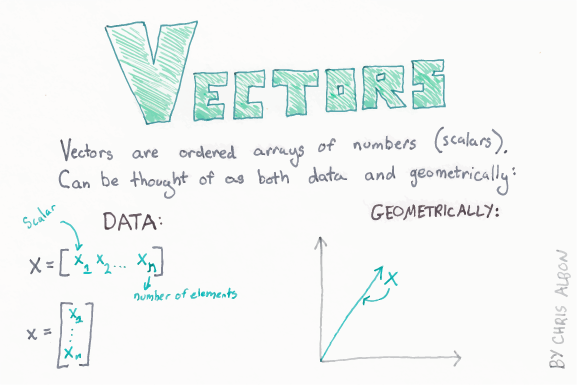 VECTORS
Vectors are ordered arrays of numbers (scalars).
Can be thought of as both data and geometrically:
DATA:
Scalar
X = [X₁ X₂ ... Xₙ]
number of elements
X = [X₁ ⋮ Xₙ]
GEOMETRICALLY:
X
BY CHRIS ALBON